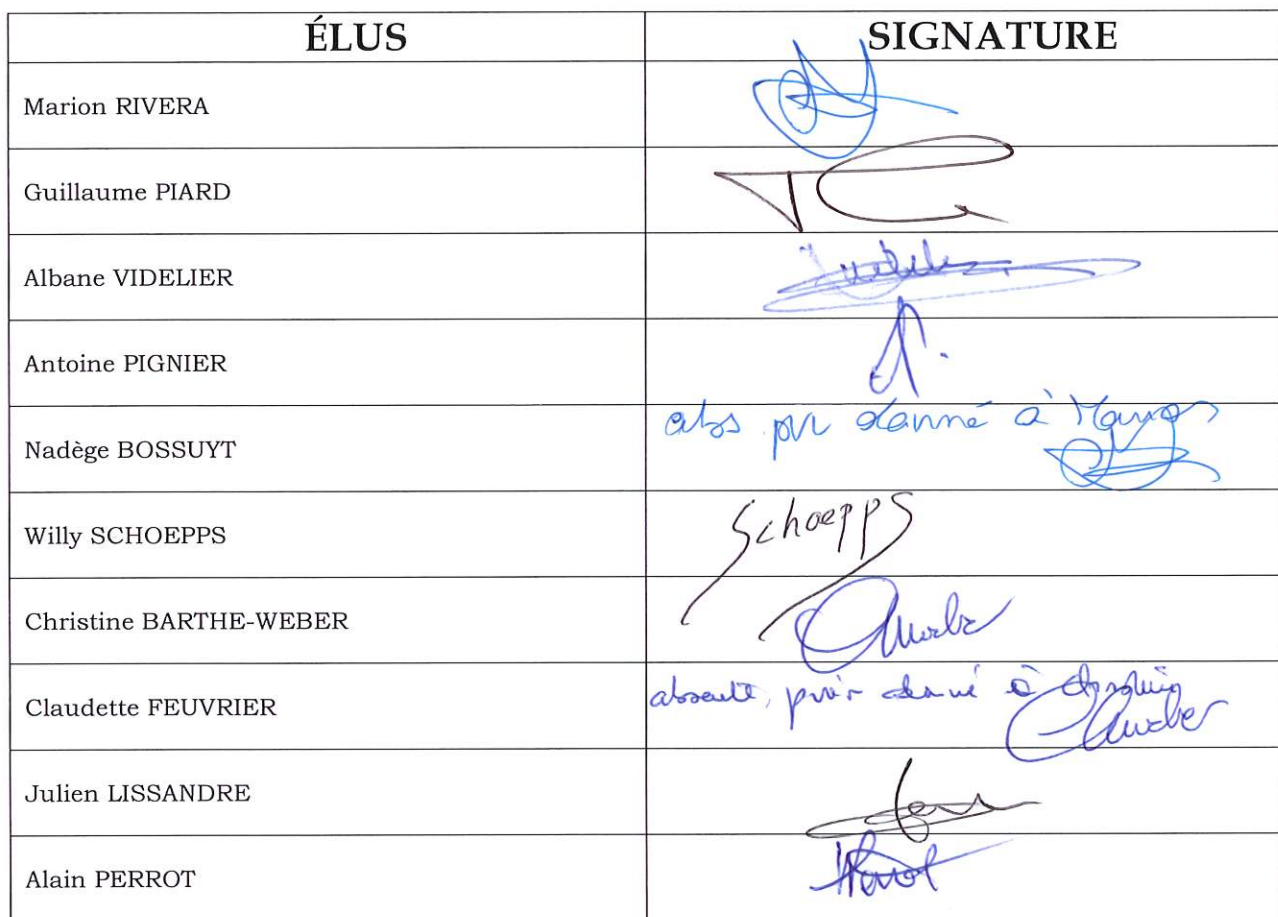 ÉLUS SIGNATURE
Marion RIVERA
Guillaume PIARD
Albane VIDELIER
Antoine PIGNIER
Nadège BOSSUYT abs pvr donné à Marion
Willy SCHOEPPS Schoepps
Christine BARTHE-WEBER
Claudette FEUVRIER absente, donné à
Julien LISSANDRE
Alain PERROT Perrot